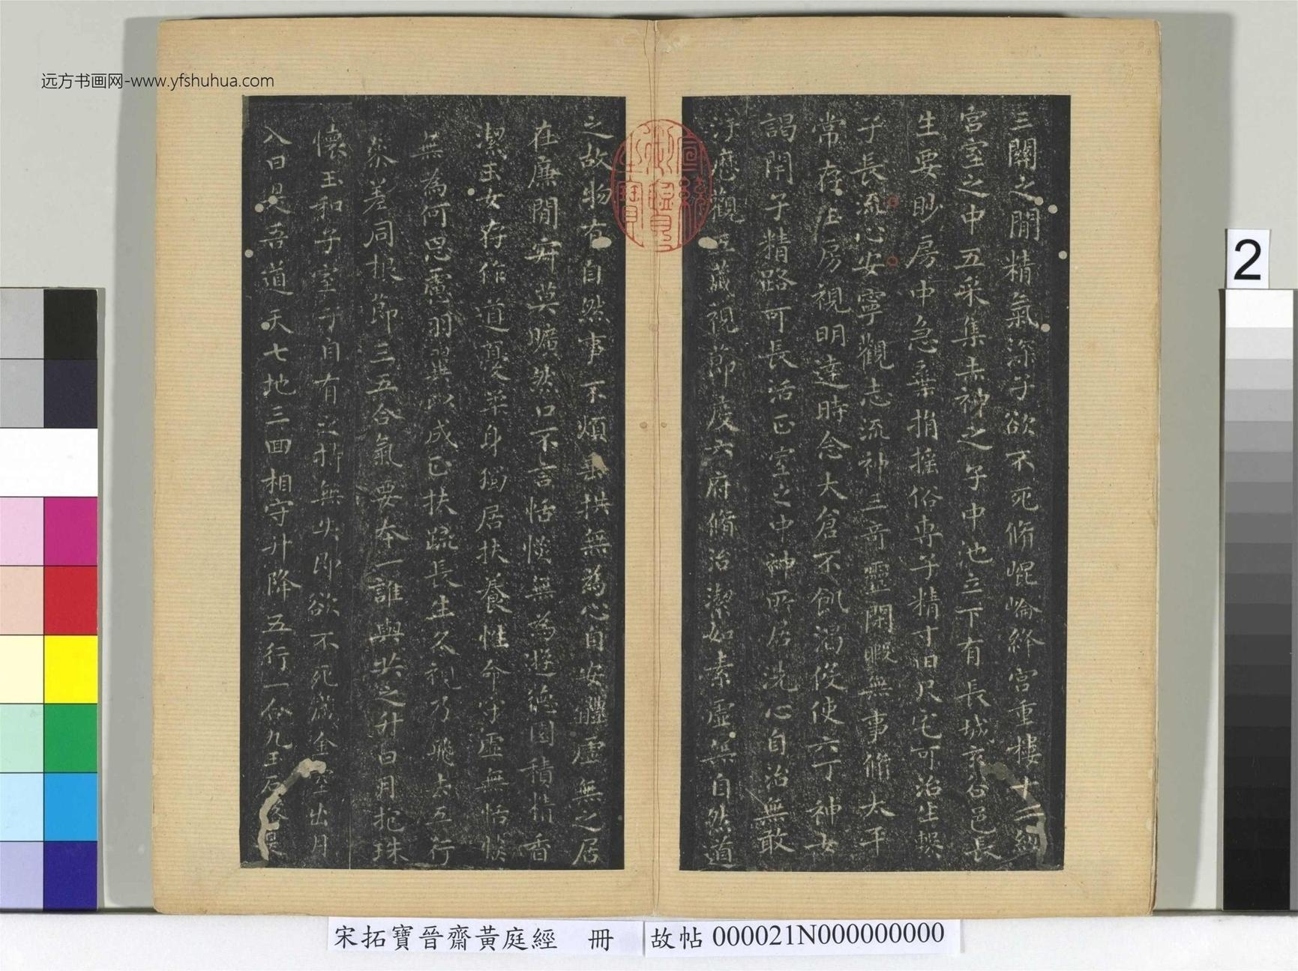 远方书画网-www.yfshuhua.com
三關之閒精氣深子欲不死脩崐崘絳宮重樓十二級
宮室之中五采集赤神之子中池立下有長城玄谷邑長
生要眇房中急棄捐搖俗專子精寸田尺宅可治生
子長流心安寧觀志流神三奇靈閑暇無事脩太平
常存房視明達時念大倉不飢渴役使六丁神女
謁閇子精路可長活正室之中神所居洗心自治無敢
汙歷觀五藏視節度六府脩治潔如素虛無自然道
之故物有自然事不煩垂拱無為心自安體虛無之居
在廉閒寂莫曠然口不言恬惔無為遊德園積精香
潔玉女存作道憂柔身獨居扶養性命守虛無恬惔
無為何思慮羽翼以成正扶疏長生久視乃飛去五行
參差同根節三五合氣要本一誰與共之升日月抱珠
懷玉和子室子自有之持無失即欲不死藏金出月
入日是吾道天七地三回相守升降五行一合九玉石
宋拓寶晉齋黃庭經 冊
故帖 000021N000000000
2